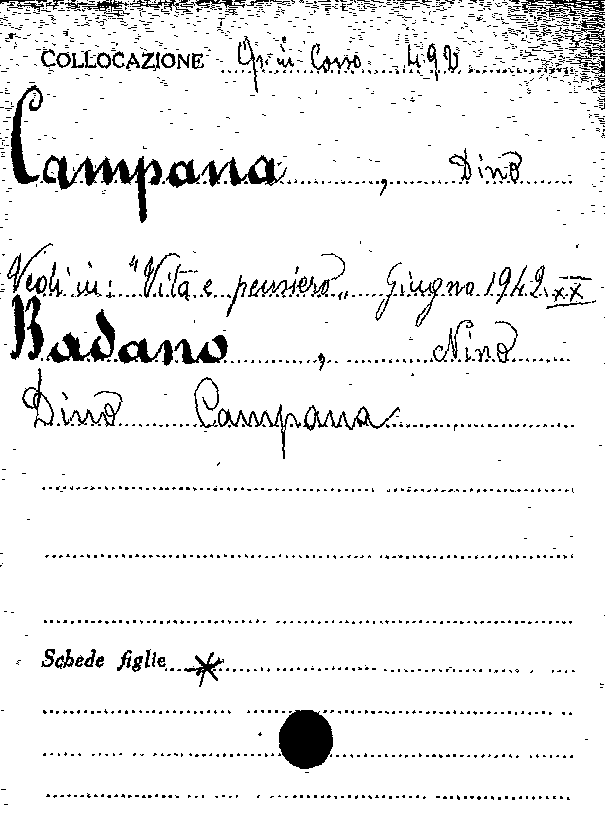 COLLOCAZIONE Op. in Corso 492
Campana, Dino
Vedi in: "Vita e pensiero" Giugno 1942 XX
Badano, Nino
Dino Campana
Schede figlie *